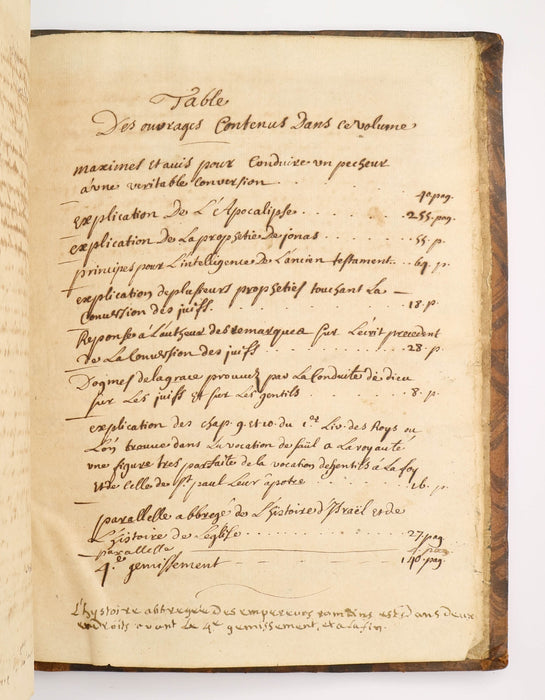 Table
Des ouvrages Contenus Dans ce volume
maximes Et avis pour Conduire un pecheur
a une veritable Conversion . . . . . . . . 4a pag.
explication De L'Apocalipse . . . . . . . 255. pag.
explication De La prophetie De jonas . . . . . 55. p.
principes pour L'intelligence De L'ancien testament . . 69. p.
explication de plusieurs propheties touchant La
Conversion des juifs . . . . . . . . 18. p.
Reponse a L'autheur des remarques sur L'ecrit precedent
de La Conversion des juifs . . . . . . . 28. p.
Dogmes de la grace prouvez par La Conduite de dieu
sur Les juifs Et sur Les gentils . . . . . . 8. p.
explication des chap. 9. et 10. du 1er Liv. des Roys ou
L'on trouve dans La vocation de saül a La royauté
une figure tres parfaite de la vocation des gentils a La foy
Et de Celle de St. paul Leur apotre . . . . . . 26. p.
parallelle abbregé de L'histoire d'Israël et de
L'histoire de L'eglise . . . . . . . 27. pag
parallelle
4e gemissement 140. pag.
L'hystoire abbregée Des empereurs romains est dans deux
endroits avant Le 4e gemissement, et a La fin.